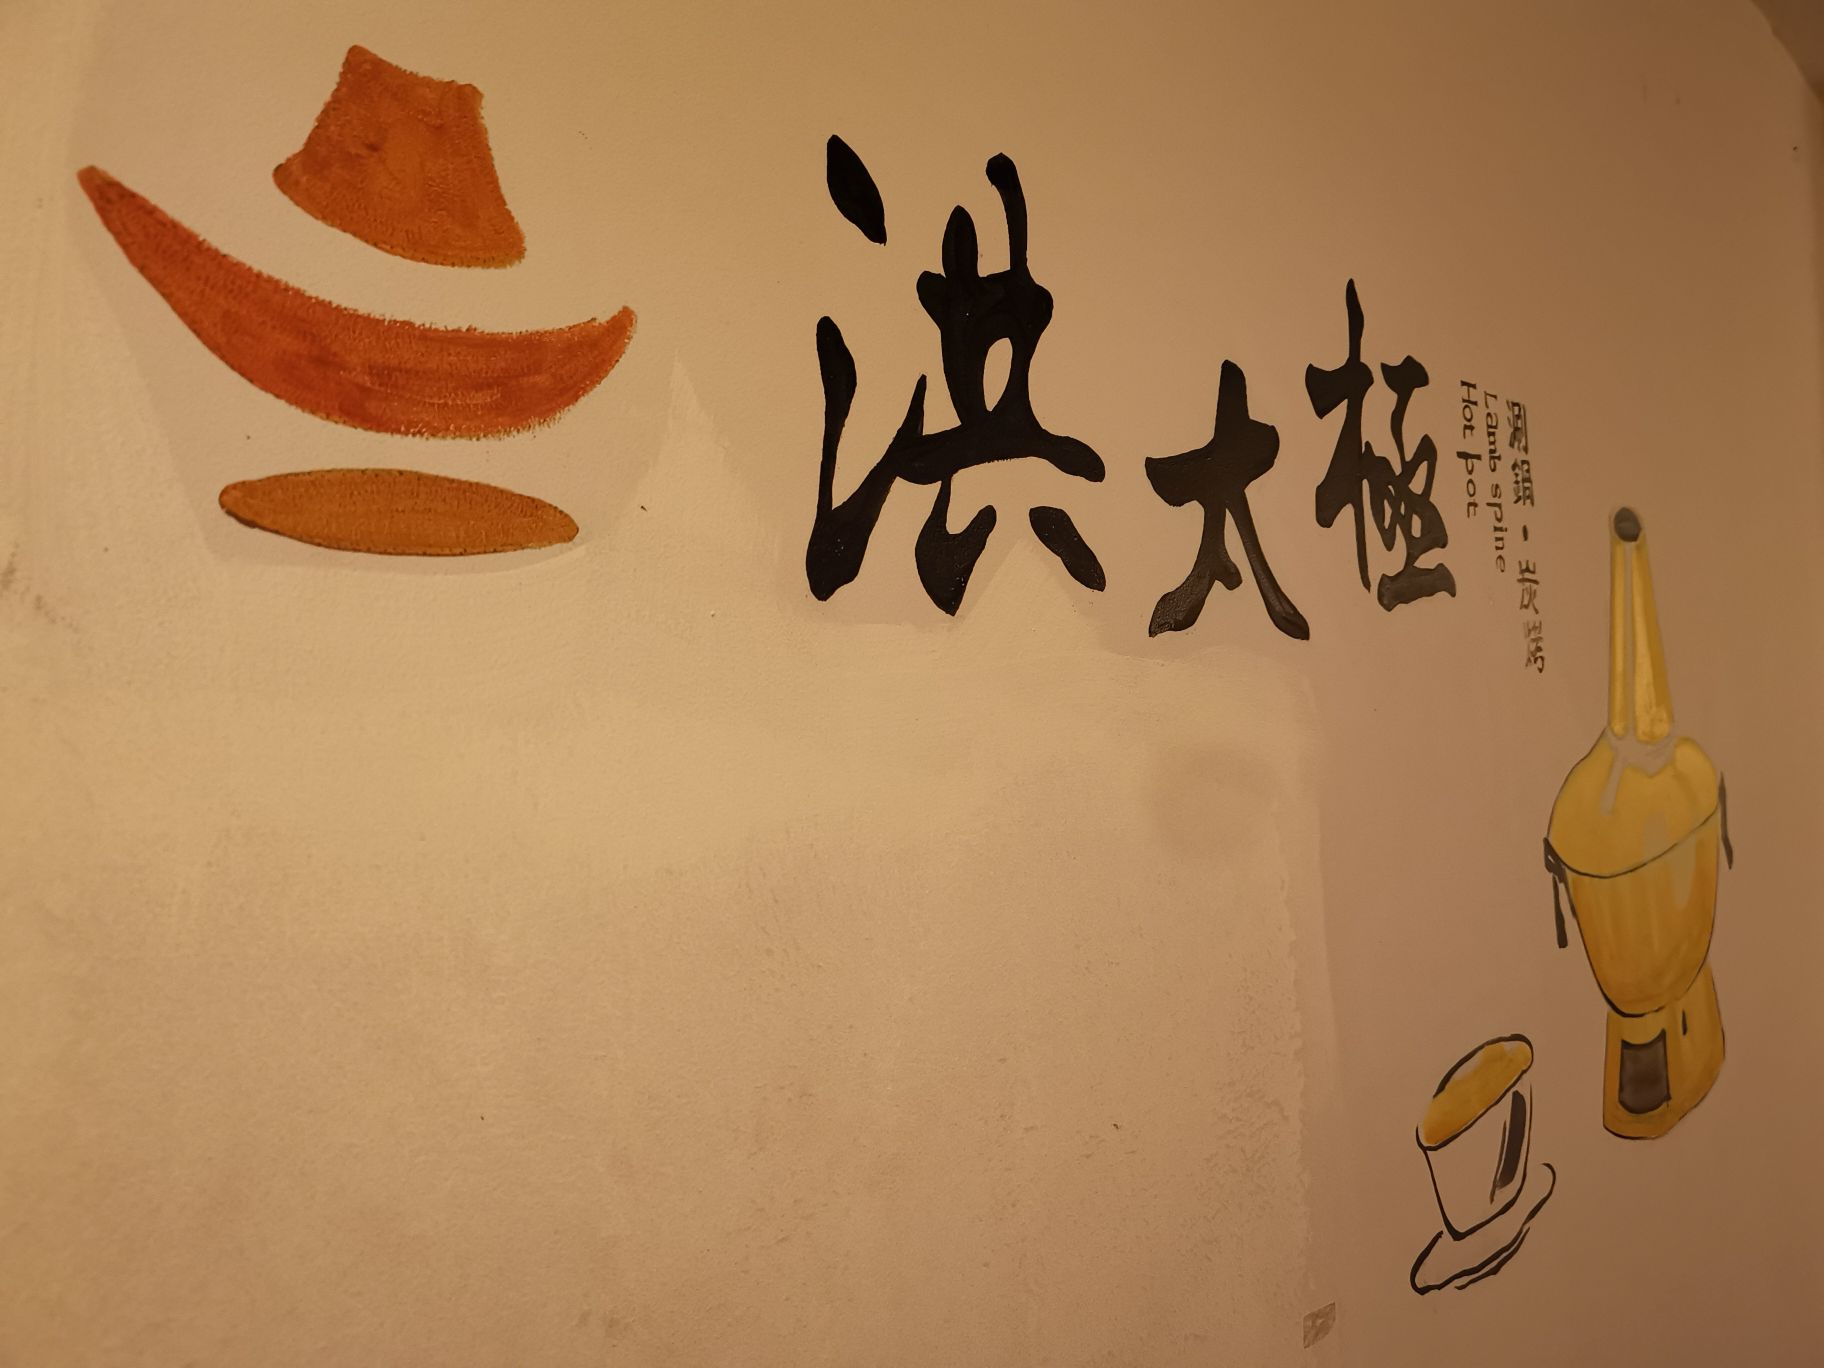 洪太極
Lamb spine
Hot pot